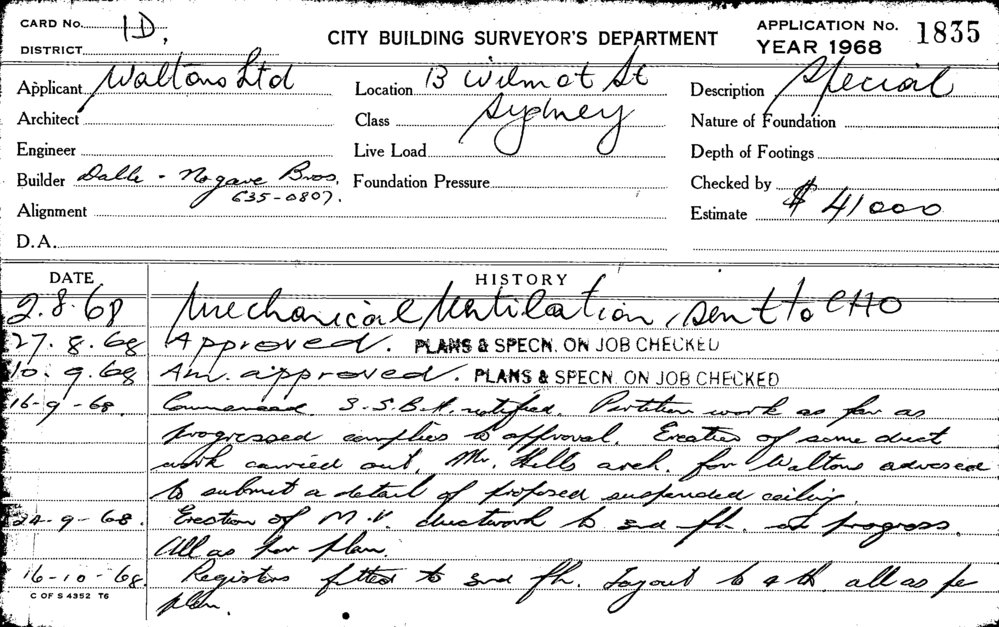 CARD No. 1D,
DISTRICT
CITY BUILDING SURVEYOR'S DEPARTMENT
APPLICATION No. 1835
YEAR 1968
Applicant Waltons Ltd
Location 13 Wilmot St
Description Special
Architect
Class Sydney
Nature of Foundation
Engineer
Live Load
Depth of Footings
Builder Dalle - Nogave Bros.
635-0807.
Foundation Pressure
Checked by
Alignment
Estimate $ 41000
D.A.
DATE HISTORY
2.8.68 Mechanical Ventilation, sent to CHO
27.8.68 Approved. PLANS & SPECN. ON JOB CHECKED
10.9.68 Am. approved. PLANS & SPECN. ON JOB CHECKED
16-9-68. Commenced. S.S.B.A. notified. Partition work as far as
progressed complies to approval. Erection of some duct
work carried out. Mr. Hills arch. for Waltons advised
to submit a detail of proposed suspended ceiling.
24-9-68. Erection of M.V. ductwork to 3rd flr. in progress.
All as per plan.
16-10-68. Registers fitted to 3rd flr. Layout to 4th all as pe
plan.
C OF S 4352 T6